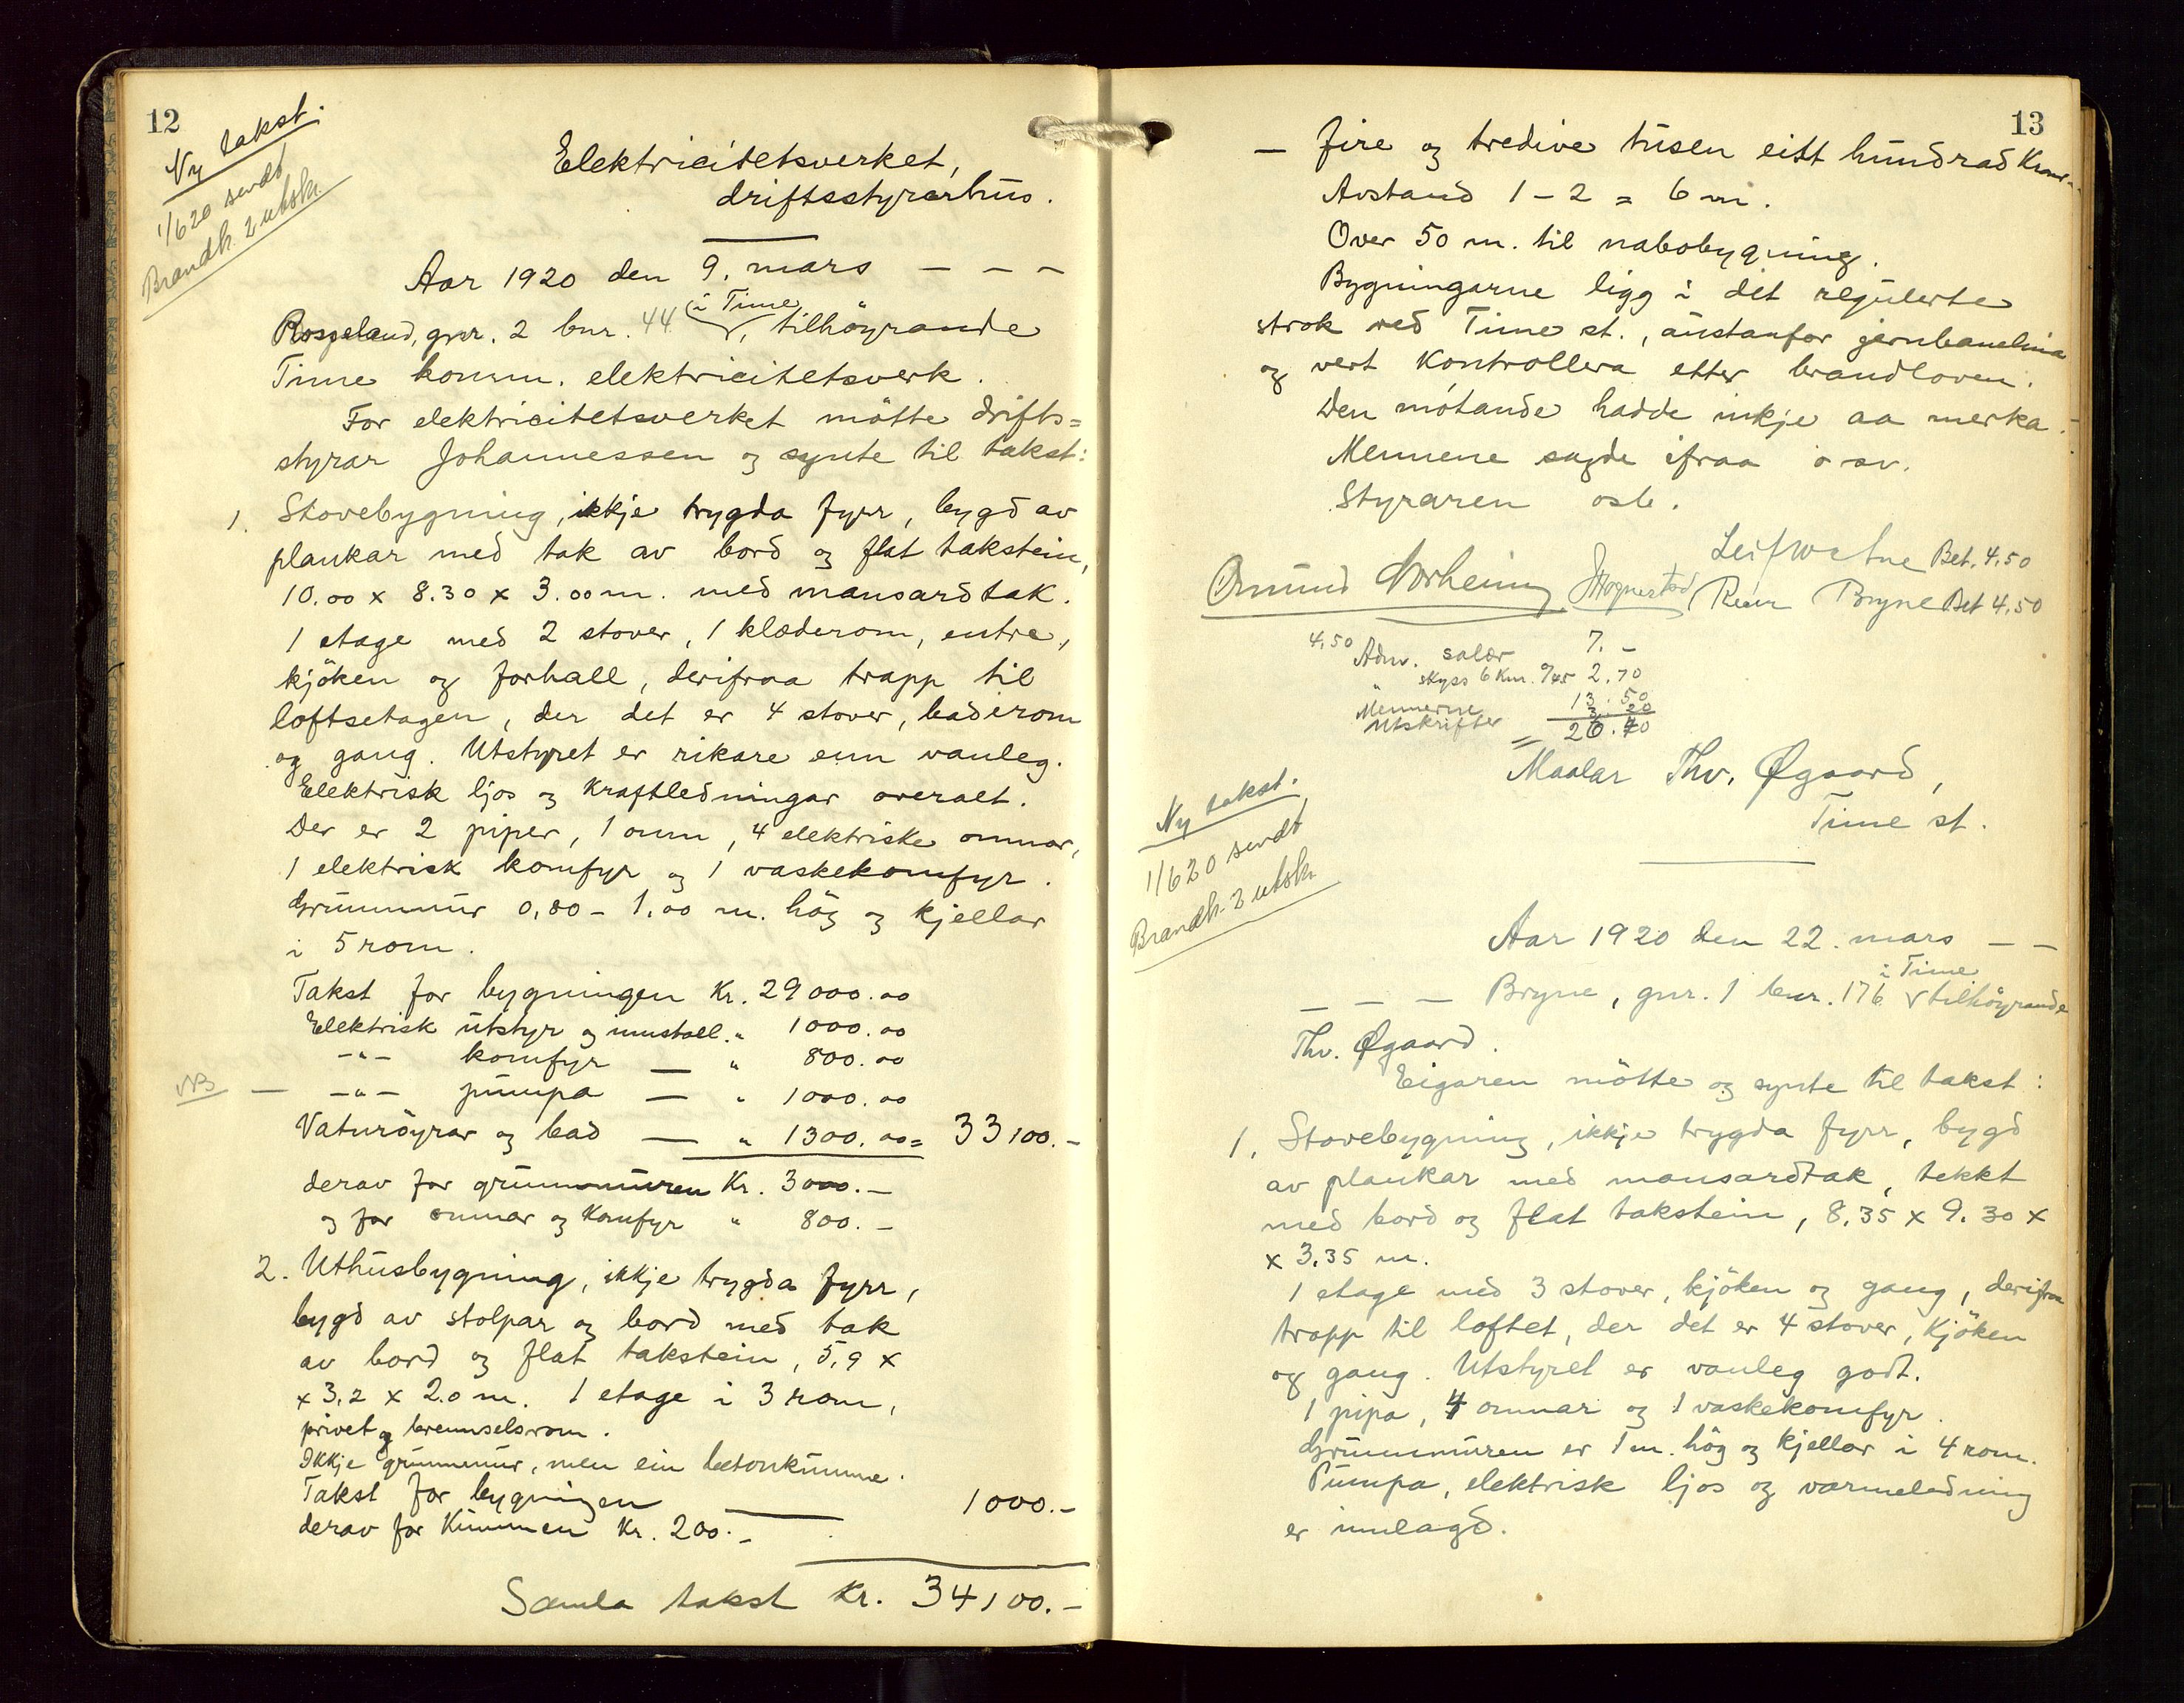 12
Ny takst.
1/6 20 sendt
Brandk. 2 utskr.
Elektricitetsverket,
driftsstyrarhus.
Aar 1920 den 9. mars — — —
i Time
Rosseland, gnr. 2 bnr. 44 , tilhöyrande
Time komm. elektricitetsverk.
For elektricitetsverket mötte drifts=
styrar Johannessen og synte til takst:
1. Stovebygning, ikkje trygda fyrr, bygd av
plankar med tak av bord og flat takstein,
10.00 x 8.30 x 3.00 m. med mansardtak.
1 etage med 2 stover, 1 klæderom, entre,
kjöken og forhall, derifraa trapp til
loftsetagen, der det er 4 stover, baderom
og gang. Utstyret er rikare enn vanleg.
Elektrisk ljos og kraftledningar overalt.
Der er 2 piper, 1 omn, 4 elektriske omnar,
1 elektrisk komfyr og 1 vaskekomfyr.
Grunnmur 0,80 - 1,00 m. hög og kjellar
i 5 rom.
Takst for bygningen Kr. 29000.00
Elektrisk utstyr og innstall. " 1000.00
-"- komfyr — " 800.00
NB — -"- pumpa — " 1000.00
Vatnröyrar og bad — " 1300.00 = 33100.-
derav for grunnmuren Kr. 3000.-
og for omnar og komfyr " 800.-
2. Uthusbygning, ikkje trygda fyrr,
bygd av stolpar og bord med tak
av bord og flat takstein, 5,9 x
x 3,2 x 2.0 m. 1 etage i 3 rom,
privet og brennselsrom.
Ikkje grunnmur, men ein betonkumme.
Takst for bygningen — 1000.-
derav for kummen Kr. 200.-
Samla takst Kr. 34100.-
13
— fire og tredive tusen eitt hundrad Kroner
Avstand 1 - 2 = 6 m.
Over 50 m. til nabobygning.
Bygningarne ligg i det regulerte
strok ved Time st., austanfor jernbanelina
og vert kontrollera etter brandloven.
Den mötande hadde inkje aa merka.
Mennene sagde ifraa o sv.
Styraren osb.
Leif Wetne Bet. 4,50
Omund Norheim Reier Bryne Bet 4,50
4,50 Adm. salær 7. -
" skyss 6 Km. à/45 2.70
Mennerne 13.50
Utskrifter 3.20
= 26.40
Maalar Thv. Øgaard,
Time st.
Ny takst.
1/6 20 sendt
Brandk. 2 utskr.
Aar 1920 den 22. mars — —
i Time
— — — Bryne, gnr. 1 bnr. 176 tilhöyrande
Thv. Øgaard.
Eigaren mötte og synte til takst:
1. Stovebygning, ikkje trygda fyrr, bygd
av plankar med mansardtak, tekkt
med bord og flat takstein, 8,35 x 9.30 x
x 3,35 m.
1 etage med 3 stover, kjöken og gang, derifraa
trapp til loftet, der det er 4 stover, kjöken
og gang. Utstyret er vanleg godt.
1 pipa, 4 omnar og 1 vaskekomfyr.
Grunnmuren er 1 m. hög og kjellar i 4 rom.
Pumpa, elektrisk ljos og varmeledning
er innlagd.